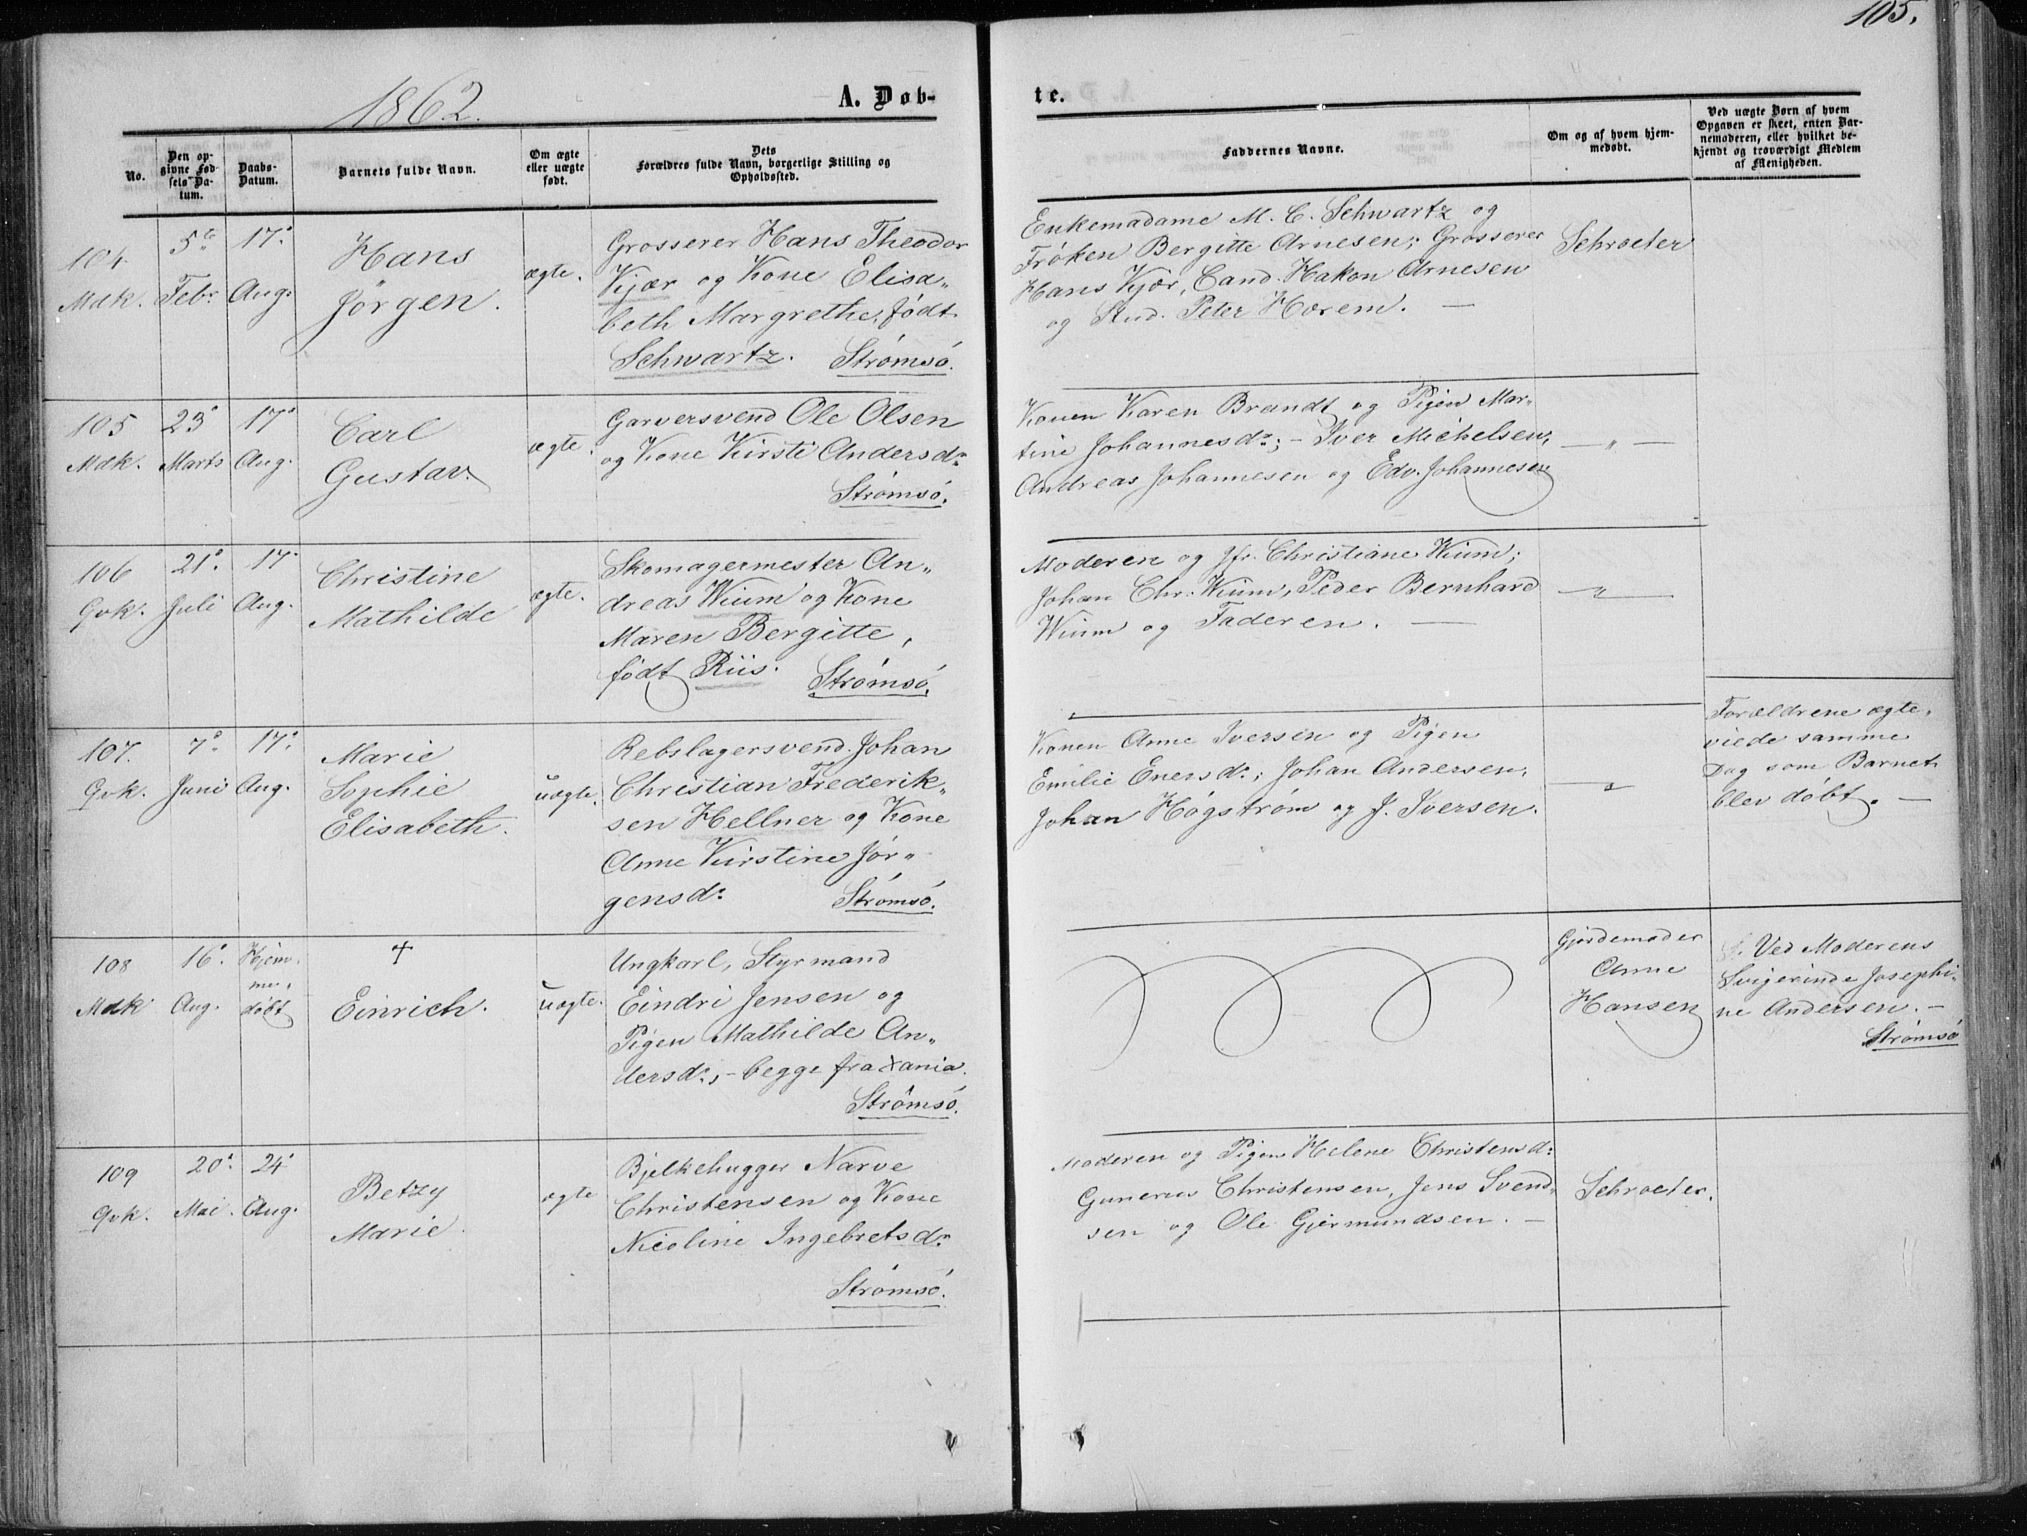 105.
1862.
A. Døb-
te.
No.
Den op-
givne Fød-
sels Da-
tum.
Daabs-
Datum.
Barnets fulde Navn.
Om ægte
eller uægte
født.
Dets
Forældres fulde Navn, borgerlige Stilling og
Opholdssted.
Faddernes Navne.
Om og af hvem hjem-
medøbt.
Ved uægte Børn af hvem
Opgaven er skeet, enten Bar-
nemoderen, eller hvilket be-
kjendt og troværdigt Medlem
af Menigheden.
104
Mdk.
5te
Febr
17de
Aug.
Hans
Jørgen.
ægte.
Grosserer Hans Theodor
Kjær og Kone Elisa-
beth Margrethe, født
Schwartz. Strømsø.
Enkemadame M. C. Schwartz og
Frøken Bergitte Arnesen; Grosserer
Hans Kjær, Cand. Hakon Arnesen
og Stud. Peter Horem. —
Schroeter
105
Mdk.
23
Marts
17
Aug.
Carl
Gustav.
ægte.
Garversvend Ole Olsen
og Kone Kirsti Andersd:
Strømsø.
Konen Karen Brandt og Pigen Mar-
tine Johannesd:; - Iver Michelsen,
Andreas Johannesen og Edv. Johannesen
— " —
106
Qvk.
21
Juli
17
Aug.
Christine
Mathilde
ægte.
Skomagermester An-
dreas Wium og Kone
Maren Bergitte,
født Riis. Strømsø.
Moderen og Jfr. Christiane Wium;
Johan Chr. Wium, Peder Bernhard
Wium og Faderen. —
— " —
107.
Qvk.
7
Juni
17
Aug.
Marie
Sophie
Elisabeth.
uægte.
Rebslagersvend Johan
Christian Frederik-
sen Hellner og Kone
Anne Kirstine Jør-
gensd: Strømsø.
Konen Anne Iversen og Pigen
Emilie Enersd:; Johan Andersen,
Johan Høgstrøm og J. Iversen.
— " —
Forældrene ægte-
viede samme
Dag som Barnet
blev døbt. —
108
Mdk
16
Aug.
Hjem-
me-
døbt
+
Einrich.
uægte.
Ungkarl, Styrmand
Eindri Jensen og
Pigen Mathilde An-
dersd:, - begge fra Xania.
Strømsø.
Gjordemoder
Anne
Hansen
Ved Moderens
Svigerinde Josephi-
ne Andersen. —
Strømsø
109
Qvk.
20
Mai.
24
Aug.
Betzy
Marie
ægte
Bjelkehugger Narve
Christensen og Kone
Nicoline Ingebretsd:
Strømsø.
Moderen og Pigen Helene Christensd:
Gunerius Christensen, Jens Svend-
sen og Ole Gjermundsen. —
Schroeter.